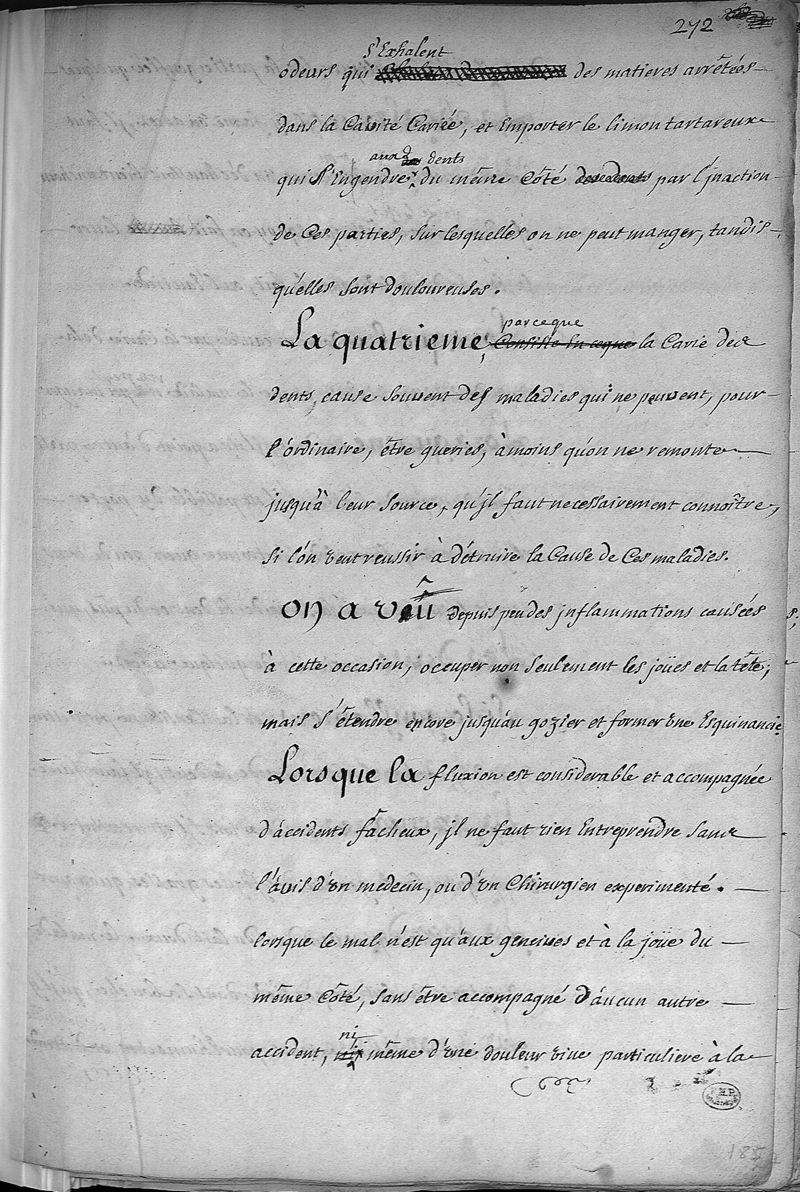 272
s'Exhalent
odeurs qui des matieres arrêtées
dans la Cavité Cariée, et Emporter le limon tartareux
aux dents
qui s'Engendre, du même Côté par l'jnaction
de Ces parties, sur lesquelles on ne peut manger, tandis
qu'elles sont douloureuses.
parceque
La quatrieme, Consiste En ceque la Carie des
dents, cause souvent des maladies qui ne peuvent, pour
l'ordinaire, être gueries, àmoins qu'on ne remonte
jusqu'à leur source, qu'jl faut necessairement connoître,
si l'on veut reussir à détruire la Cause de Ces maladies.
on a vû depuis peu des jnflammations causées
à cette occasion, occuper non seulement les joües et la tête,
mais s'étendre encore jusqu'au gozier et former une Esquinancie.
Lorsque la fluxion est considerable et accompagnée
d'accidents facheux, jl ne faut rien Entreprendre sans
l'avis d'un medecin, ou d'un Chirurgien experimenté.
lorsque le mal n'est qu'aux gencives et à la joüe du
même Côté, sans être accompagné d'aucun autre
ni
accident, même d'une douleur vive particuliere à la
185